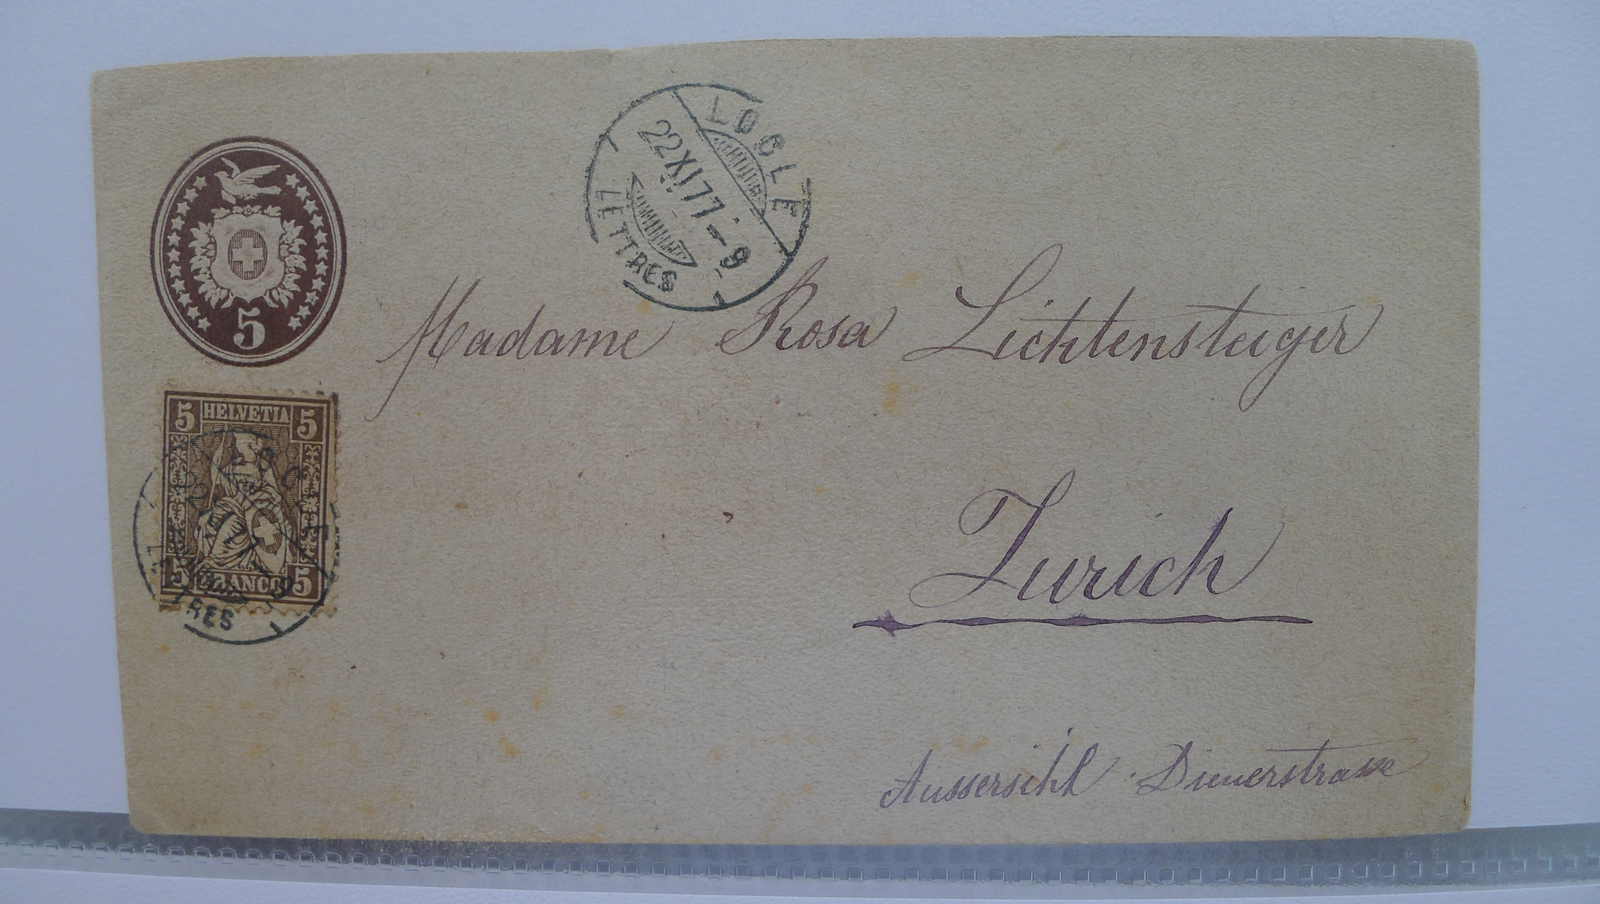 LOCLE
22 XI 77 - 9
LETTRES
5
Madame Rosa Lichtensteiger
5 HELVETIA 5
5 FRANCO 5
LOCLE
LETTRES
Zurich
Aussersihl. Dienerstrasse